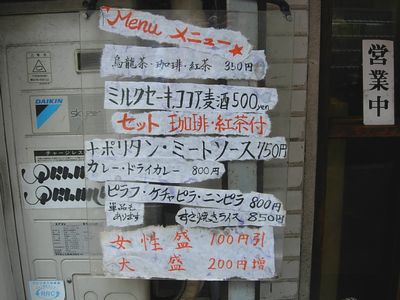 Menu メニュー★
烏龍茶・珈琲・紅茶 350円
ミルクセーキ・ココア麦酒500yen
セット 珈琲・紅茶付
ナポリタン・ミートソース750円
カレー・ドライカレー 800円
ピラフ・ケチャピラ・ニンピラ 800円
単品も
あります
すき焼きライス 850円
女性盛 100円引
大盛 200円増
営業中
DAIKIN